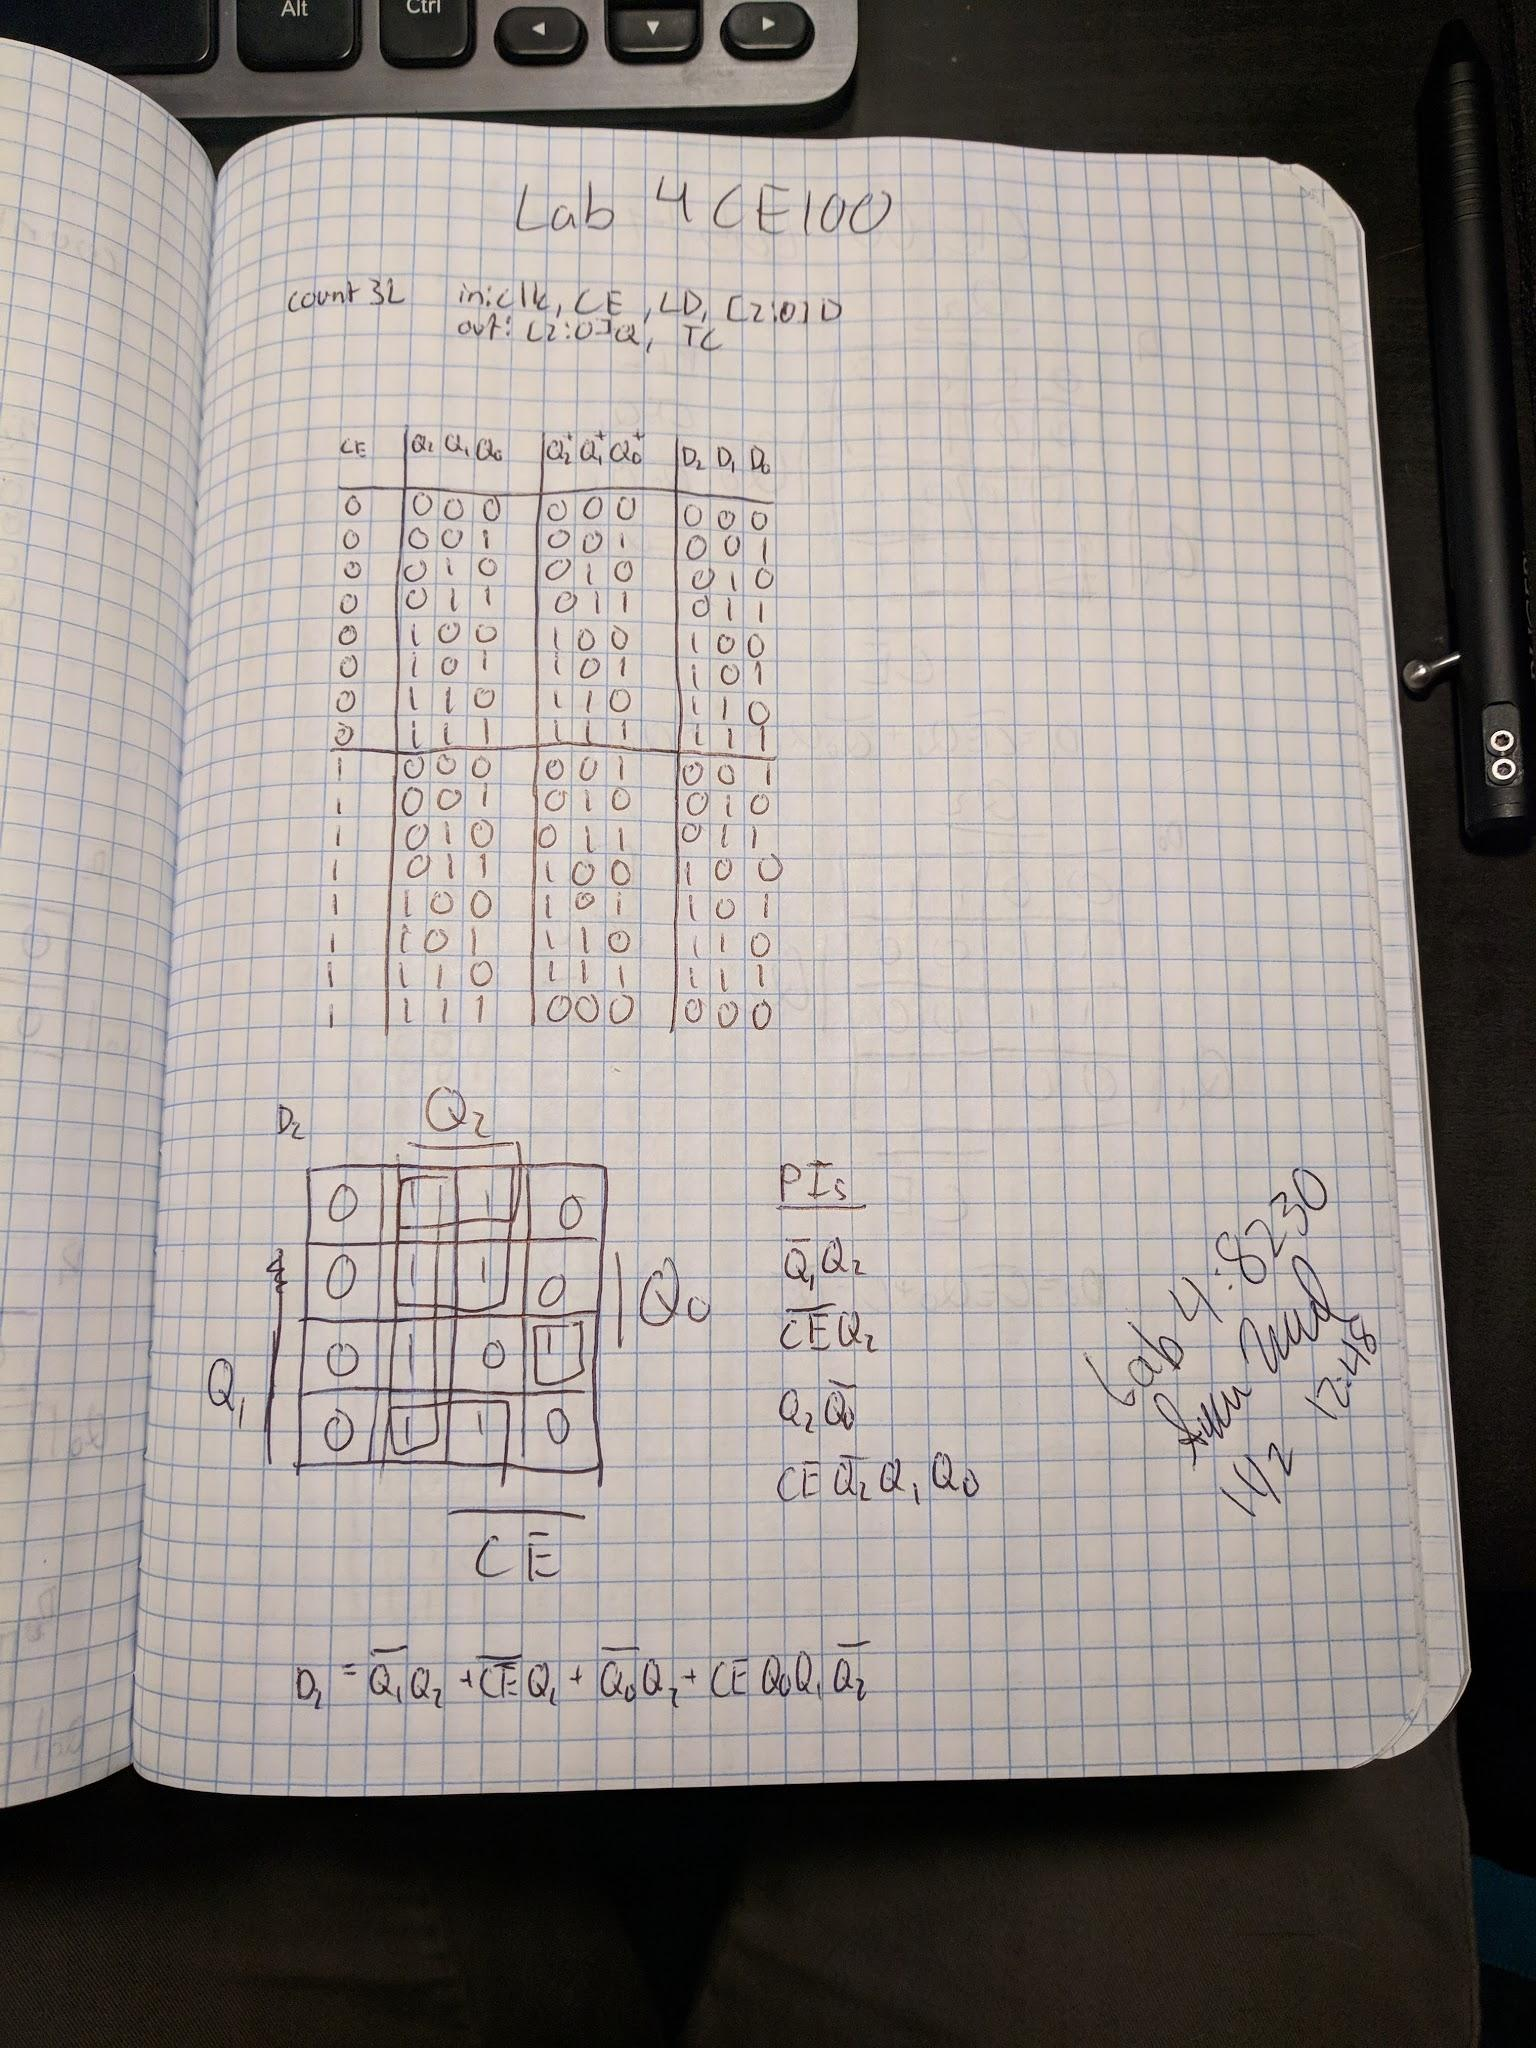 Alt
Ctrl
Lab 4 CE100
count3L in: clk, CE, LD, [2:0]D
out: [2:0]Q, TC
CE Q₂ Q₁ Q₀ Q₂⁺ Q₁⁺ Q₀⁺ D₂ D₁ D₀
0 0 0 0 0 0 0 0 0 0
0 0 0 1 0 0 1 0 0 1
0 0 1 0 0 1 0 0 1 0
0 0 1 1 0 1 1 0 1 1
0 1 0 0 1 0 0 1 0 0
0 1 0 1 1 0 1 1 0 1
0 1 1 0 1 1 0 1 1 0
0 1 1 1 1 1 1 1 1 1
1 0 0 0 0 0 1 0 0 1
1 0 0 1 0 1 0 0 1 0
1 0 1 0 0 1 1 0 1 1
1 0 1 1 1 0 0 1 0 0
1 1 0 0 1 0 1 1 0 1
1 1 0 1 1 1 0 1 1 0
1 1 1 0 1 1 1 1 1 1
1 1 1 1 0 0 0 0 0 0
D₂ Q₂
0 1 1 0
0 1 1 0
Q₀
0 1 0 1
Q₁
0 1 1 0
CE
PIs
Q̅₁Q₂
C̅E̅Q₂
Q₂Q̅₀
CEQ̅₂Q₁Q₀
D₂ = Q̅₁Q₂ + C̅E̅Q₂ + Q̅₀Q₂ + CEQ₀Q₁Q̅₂
Lab 4: 8230
12:48